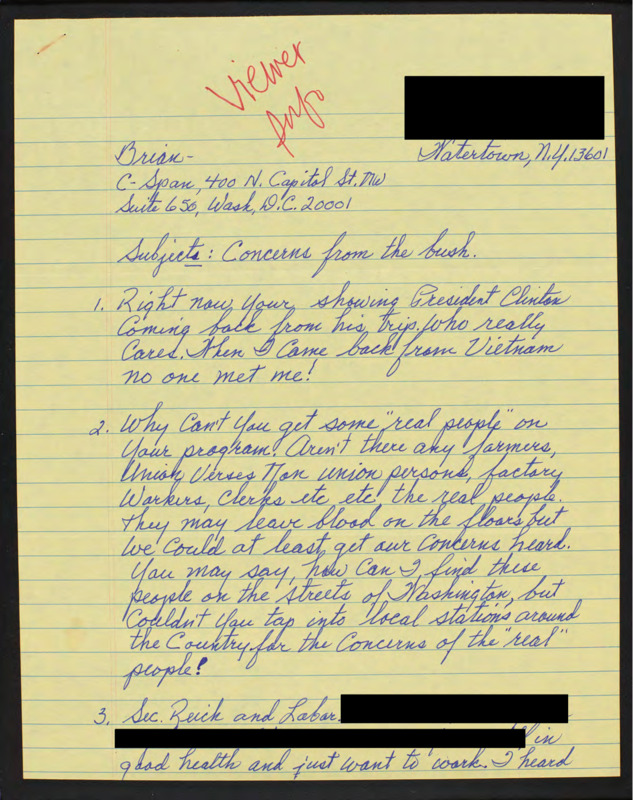 Viewer
Info
Watertown, N.Y. 13601
Brian-
C-Span, 400 N. Capitol St. NW
Suite 650, Wash, D.C. 20001
Subjects: Concerns from the bush.
1. Right now your showing President Clinton
Coming back from his trip. Who really
Cares. When I Came back from Vietnam
no one met me!
2. Why Can't You get some "real people" on
Your program. Aren't there any farmers,
Union Verses Non union persons, factory
Workers, Clerks etc etc, the real people.
They may leave blood on the floors but
We Could at least get our Concerns heard.
You may say, how Can I find these
people on the streets of Washington, but
Couldn't You tap into local stations around
the Country for the Concerns of the "real"
people!
3. Sec. Reick and Labor.
in
good health and just want to work. I heard